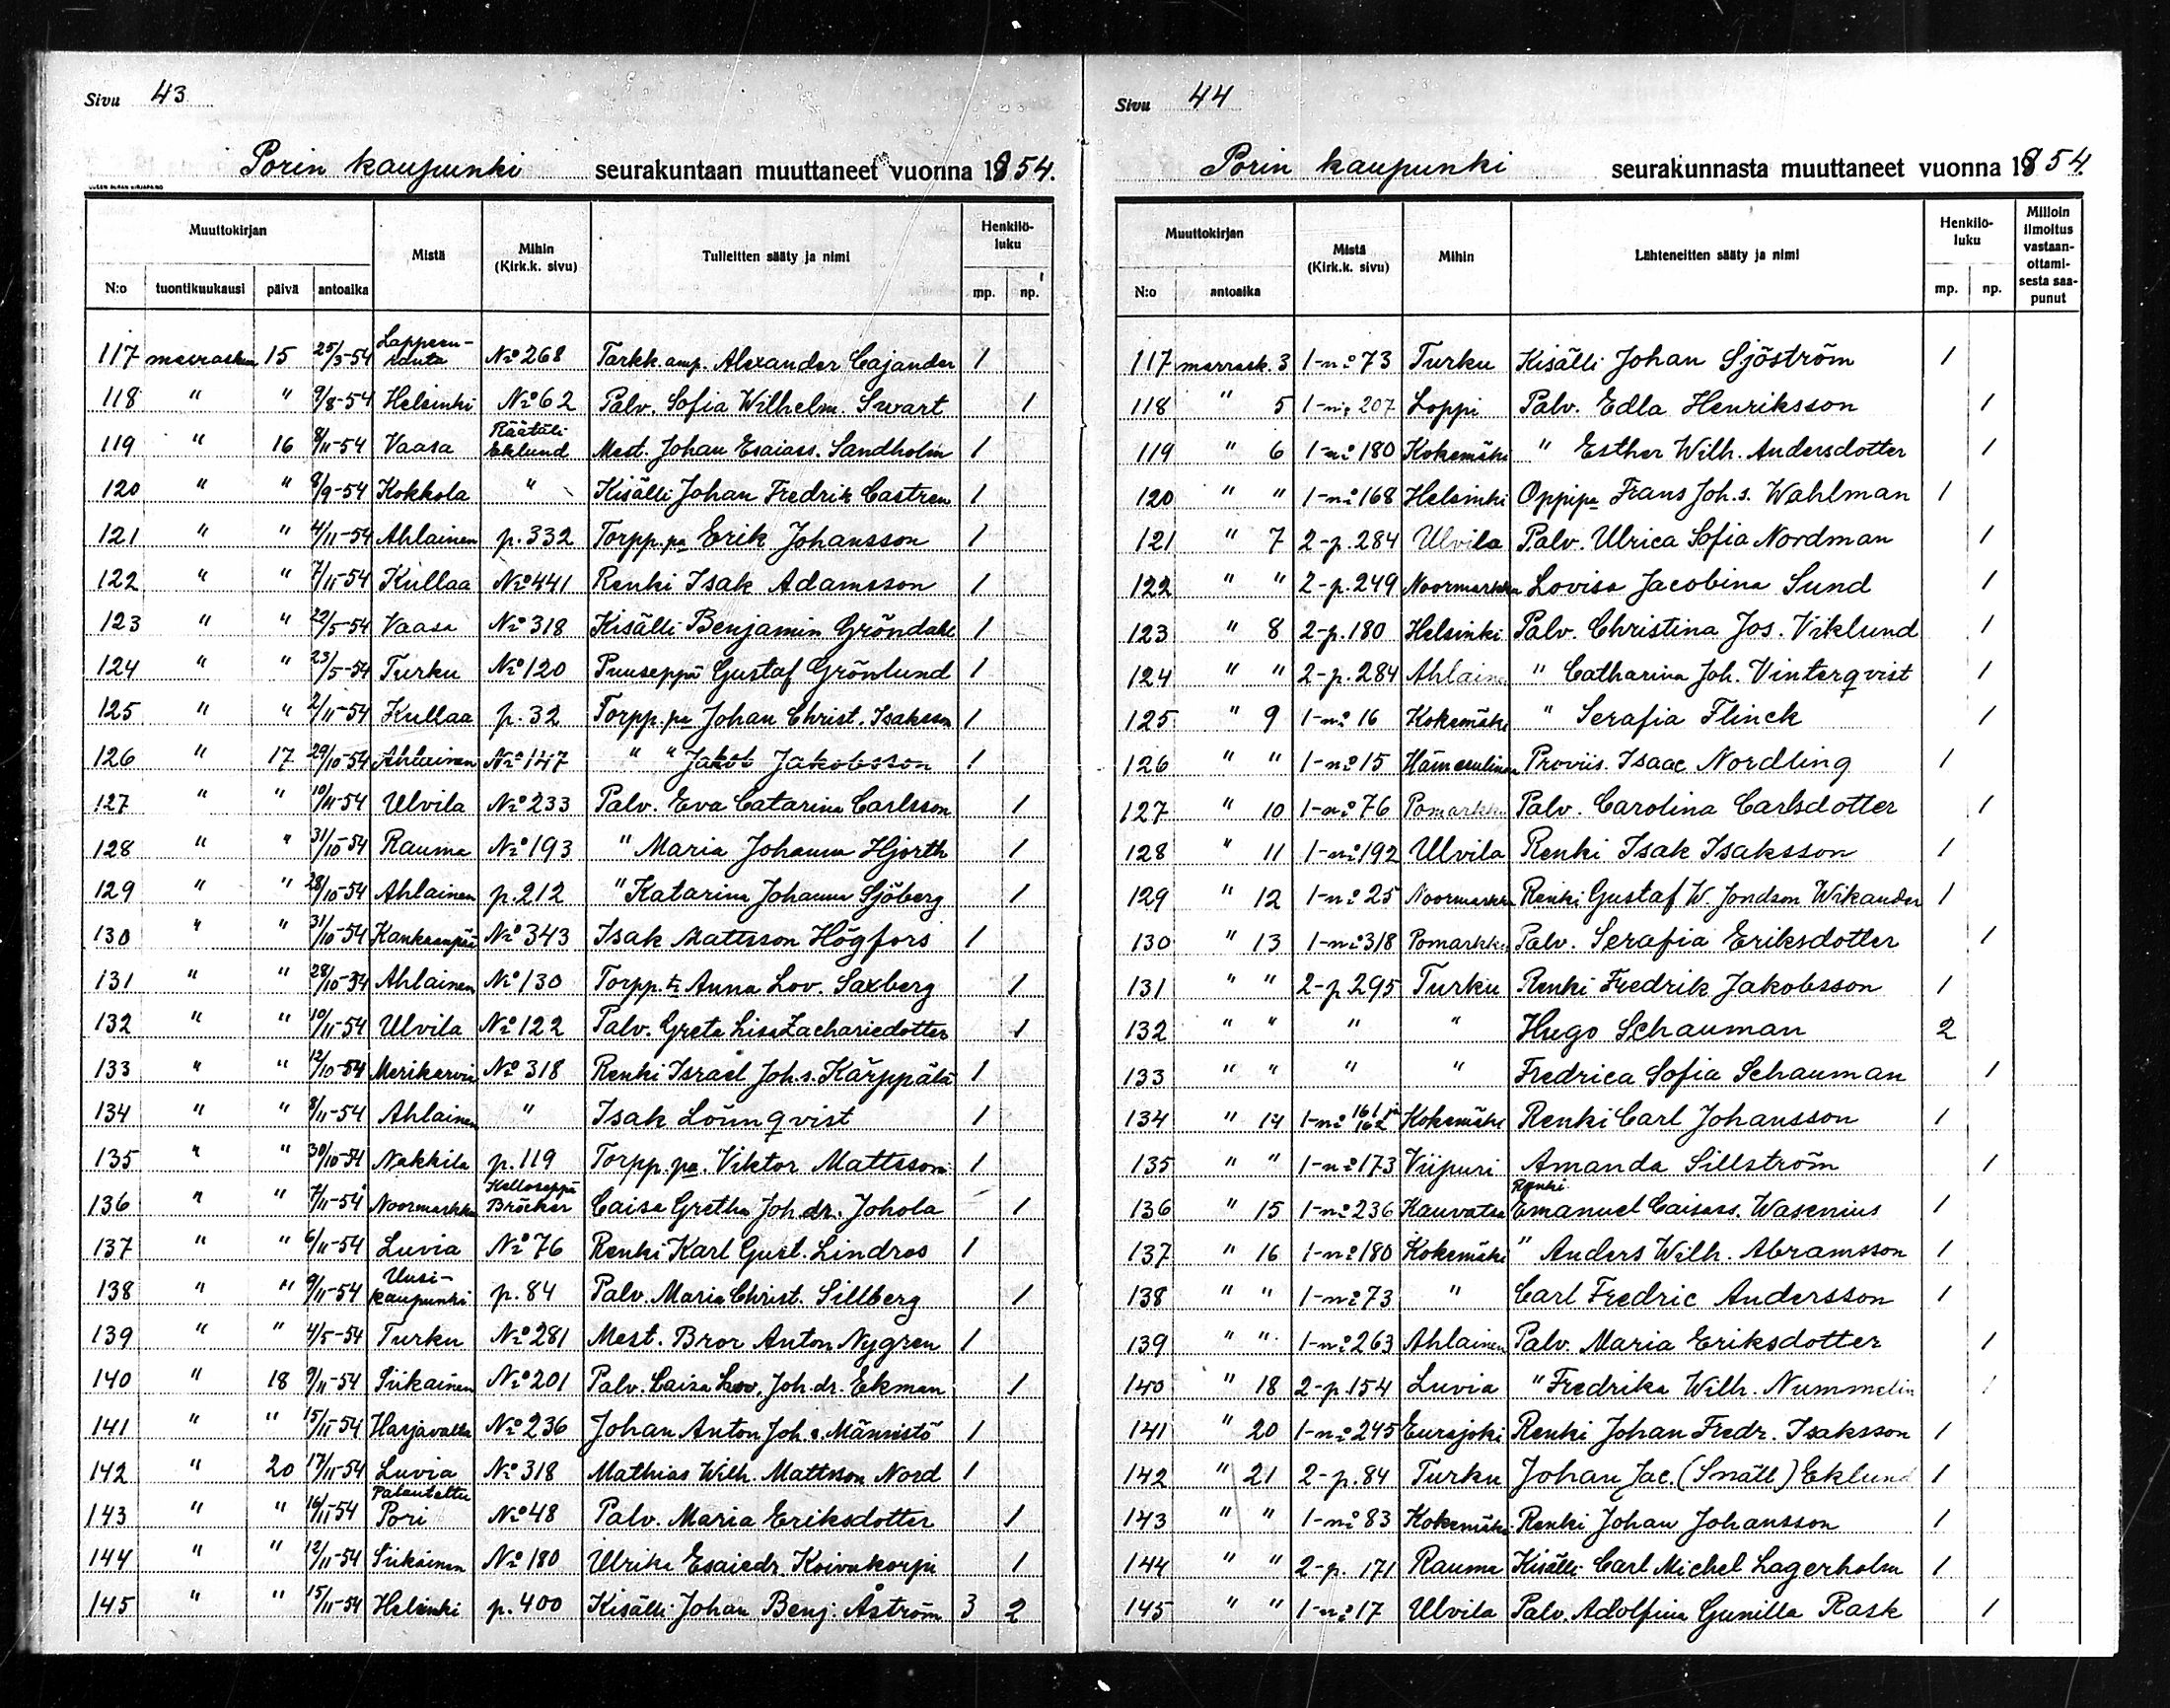 Sivu 43
Porin kaupunki seurakuntaan muuttaneet vuonna 1854.
Muuttokirjan Mistä Mihin (Kirk.k. sivu) Tulleitten sääty ja nimi Henkilö-luku
N:o tuontikuukausi päivä antoaika mp. np.
117 marraskuu 15 25/3-54 Lappeen-ranta No 268 Tarkk. amp. Alexander Cajander 1
118 " " 9/8-54 Helsinki No 62 Palv. Sofia Wilhelm. Swart 1
119 " 16 8/11-54 Vaasa Räätäli Eklund Mest. Johan Esaiass. Sandholm 1
120 " " 8/9-54 Kokkola " Kisälli Johan Fredrik Castren 1
121 " " 4/11-54 Ahlainen p. 332 Torpp. pa Erik Johansson 1
122 " " 7/11-54 Kullaa No 441 Renki Isak Adamsson 1
123 " " 22/5-54 Vaasa No 318 Kisälli Benjamin Gröndahl 1
124 " " 23/5-54 Turku No 120 Puuseppä Gustaf Grönlund 1
125 " " 2/11-54 Kullaa p. 32 Torpp. pa Johan Christ. Isaksson 1
126 " 17 29/10-54 Ahlainen No 147 " " Jakob Jakobsson 1
127 " " 10/11-54 Ulvila No 233 Palv. Eva Catarina Carlsson 1
128 " " 31/10-54 Rauma No 193 " Maria Johanna Hjorth 1
129 " " 28/10-54 Ahlainen p. 212 " Katarina Johanna Sjöberg 1
130 " " 31/10-54 Kankaanpää No 343 Isak Mattsson Högfors 1
131 " " 28/10-54 Ahlainen No 130 Torpp. tr Anna Lov. Saxberg 1
132 " " 10/11-54 Ulvila No 122 Palv. Greta Lisa Zachariedotter 1
133 " " 12/10-54 Merikarvia No 318 Renki Israel Joh.s. Kärppälä 1
134 " " 8/11-54 Ahlainen " Isak Lönnqvist 1
135 " " 30/10-54 Nakkila p. 119 Torpp. pa. Viktor Mattsson 1
136 " " 7/11-54 Noormarkku Kelloseppä Bröcker Caisa Gretha Joh.dr. Johola 1
137 " " 6/11-54 Luvia No 76 Renki Karl Gust. Lindros 1
138 " " 9/11-54 Uusi-kaupunki p. 84 Palv. Maria Christ. Sillberg 1
139 " " 4/5-54 Turku No 281 Mest. Bror Anton Nygren 1
140 " 18 9/11-54 Siikainen No 201 Palv. Caisa Lov. Joh.dr. Ekman 1
141 " " 15/11-54 Harjavalta No 236 Johan Anton Joh.s. Männistö 1
142 " 20 17/11-54 Luvia No 318 Mathias Wilh. Mattsson Nord 1
143 " " 16/11-54 Palautettu Pori No 48 Palv. Maria Eriksdotter 1
144 " " 12/11-54 Siikainen No 180 Ulrika Esaiedr. Koivukorpi 1
145 " " 15/11-54 Helsinki p. 400 Kisälli Johan Benj. Åström 3 2
Sivu 44
Porin kaupunki seurakunnasta muuttaneet vuonna 1854.
Muuttokirjan Mistä (Kirk.k. sivu) Mihin Lähteneitten sääty ja nimi Henkilö-luku Milloin ilmoitus vastaan-ottami-sesta saa-punut
N:o antoaika mp. np.
117 marrask. 3 1-no 73 Turku Kisälli Johan Sjöström 1
118 " 5 1-no 207 Loppi Palv. Edla Henriksson 1
119 " 6 1-no 180 Kokemäki " Esther Wilh. Andersdotter 1
120 " " 1-no 168 Helsinki Oppipa Frans Joh.s. Wahlman 1
121 " 7 2-p. 284 Ulvila Palv. Ulrica Sofia Nordman 1
122 " " 2-p. 249 Noormarkku Lovisa Jacobina Sund 1
123 " 8 2-p. 180 Helsinki Palv. Christina Jos. Viklund 1
124 " " 2-p. 284 Ahlainen " Catharina Joh. Vinterqvist 1
125 " 9 1-no 16 Kokemäki " Serafia Flinck 1
126 " " 1-no 15 Hämeenlinna Proviis. Isaac Nordling 1
127 " 10 1-no 76 Pomarkku Palv. Carolina Carlsdotter 1
128 " 11 1-no 192 Ulvila Renki Isak Isaksson 1
129 " 12 1-no 25 Noormarkku Renki Gustaf W. Jondson Wikander 1
130 " 13 1-no 318 Pomarkku Palv. Serafia Eriksdotter 1
131 " " 2-p 295 Turku Renki Fredrik Jakobsson 1
132 " " " " Hugo Schauman 2
133 " " " " Fredrica Sofia Schauman 1
134 " 14 1-no 161 ja 162 Kokemäki Renki Carl Johansson 1
135 " " 1-no 173 Viipuri Amanda Sillström 1
136 " 15 1-no 236 Kauvatsa Renki Emanuel Caisass. Wasenius 1
137 " 16 1-no 180 Kokemäki " Anders Wilh. Abramsson 1
138 " " 1-no 73 " Carl Fredric Andersson 1
139 " " 1-no 263 Ahlainen Palv. Maria Eriksdotter 1
140 " 18 2-p. 154 Luvia " Fredrika Wilh. Nummelin 1
141 " 20 1-no 245 Eurajoki Renki Johan Fredr. Isaksson 1
142 " 21 2-p. 84 Turku Johan Jac. (Snäll) Eklund 1
143 " " 1-no 83 Kokemäki Renki Johan Johansson 1
144 " " 2-p. 171 Rauma Kisälli Carl Michel Lagerholm 1
145 " " 1-no 17 Ulvila Palv. Adolfina Gunilla Rask 1